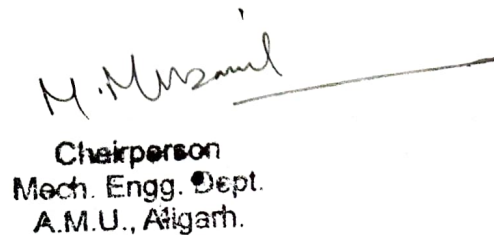 M. Muzamil
Chairperson
Mech. Engg. Dept.
A.M.U., Aligarh.